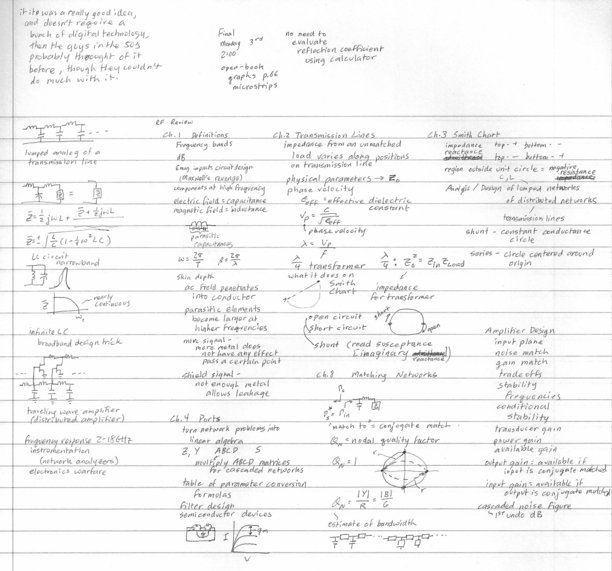 if it was a really good idea,
and doesn't require a
bunch of digital technology,
then the guys in the 50s
probably thought of it
before, though they couldn't
do much with it.
Final
Monday 3rd
2:00
open-book
graphs p.66
microstrips
no need to
evaluate
reflection coefficient
using calculator
lumped analog of a
transmission line
LC circuit
narrowband
nearly
continuous
infinite LC
broadband design trick
traveling wave amplifier
(distributed amplifier)
frequency response 2-18GHz
instrumentation
(network analyzers)
electronics warfare
RF Review
Ch.1 Definitions
Frequency bands
dB
Emag inputs circuit design
(Maxwell's revenge)
components at high frequency
electric field = capacitance
magnetic field = inductance
parasitic
capacitances
ω = 2π/T β = 2π/λ
skin depth
ac field penetrates
into conductor
parasitic elements
become larger at
higher frequencies
more signal -
more metal does
not have any effect
past a certain point
shield signal -
not enough metal
allows leakage
Ch.4 Ports
turn network problems into
linear algebra
Z, Y ABCD S
multiply ABCD matrices
for cascaded networks
table of parameter conversion
formulas
Filter design
semiconductor devices
I
gm
V
Ch.2 Transmission Lines
impedance from an unmatched
load varies along positions
on transmission line
physical parameters → Zo
phase velocity
εeff - effective dielectric
constant
Vp = c/√εeff
phase velocity
λ = Vp/f
λ/4 transformer λ/4 : Zo² = Zin Zload
what it does on
Smith
Chart
impedance
for transformer
open circuit
short circuit
short
open
shunt (read susceptance
imaginary reactance)
Ch.8 Matching Networks
"match to" = conjugate match
Qn = nodal quality factor
Qn = 1
Qn = |X|/R = |B|/G
estimate of bandwidth
Ch.3 Smith Chart
impedance top - + bottom - -
reactance top - - bottom - +
region outside unit circle = negative
resistance
C, L
Analysis / Design of lumped networks
of distributed networks
transmission lines
shunt - constant conductance
circle
series - circle centered around
origin
Amplifier Design
input plane
noise match
gain match
tradeoffs
stability
frequencies
conditional
stability
transducer gain
power gain
available gain
output gain: available if
input is conjugate matched
input gain: available if
output is conjugate matched
cascaded noise figure
1st undo dB